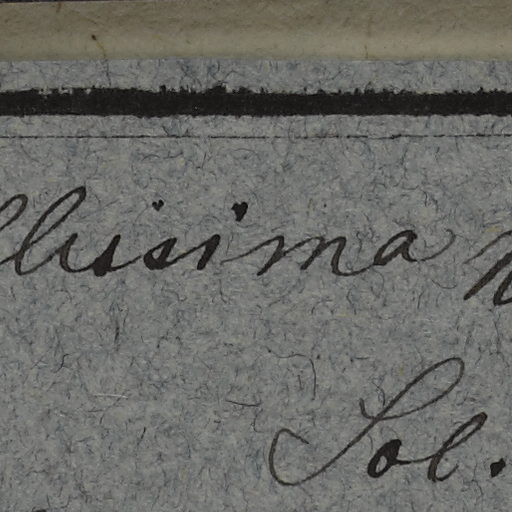 llissima
Sol.